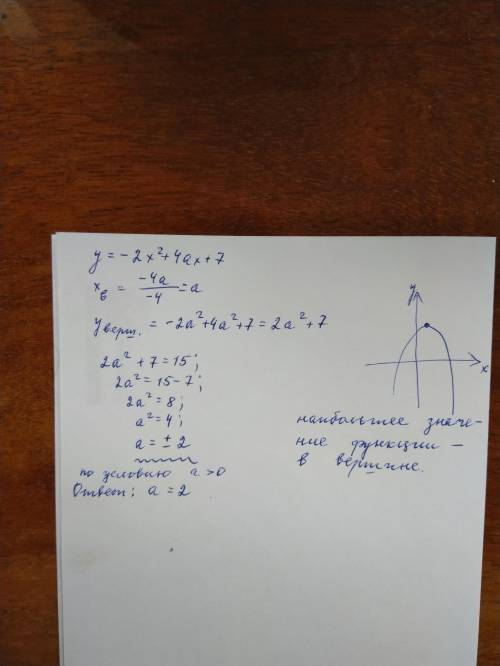 y = -2x²+4ax+7
xв = -4a/-4 = a
yверш. = -2a²+4a²+7 = 2a²+7
2a²+7=15;
2a²=15-7;
2a²=8;
a²=4;
a=±2
по условию a>0
Ответ: a=2
y
x
наибольшее значе-
ние функции –
в вершине.